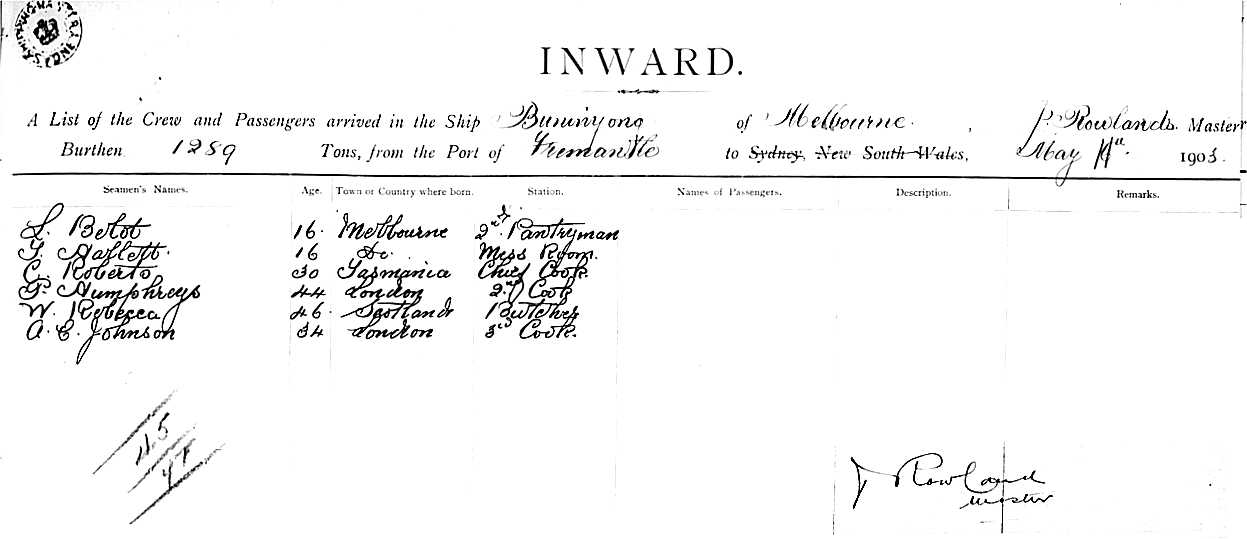 INWARD.
A List of the Crew and Passengers arrived in the Ship Buninyong of Melbourne, J. Rowlands Master
Burthen 1289 Tons, from the Port of Fremantle to Sydney, New South Wales, May 1903.
Seamen's Names. Age. Town or Country where born. Station. Names of Passengers. Description. Remarks.
L. Belot 16 Melbourne 2nd Pantryman
Haslett 16 Do. Mess Room.
C. Roberts 30 Tasmania Chief Cook
Humphreys 44 London 2nd Cook
W. Rebecca 46 Scotland Butcher
A. E. Johnson 34 London 3rd Cook.
J Rowland
Master